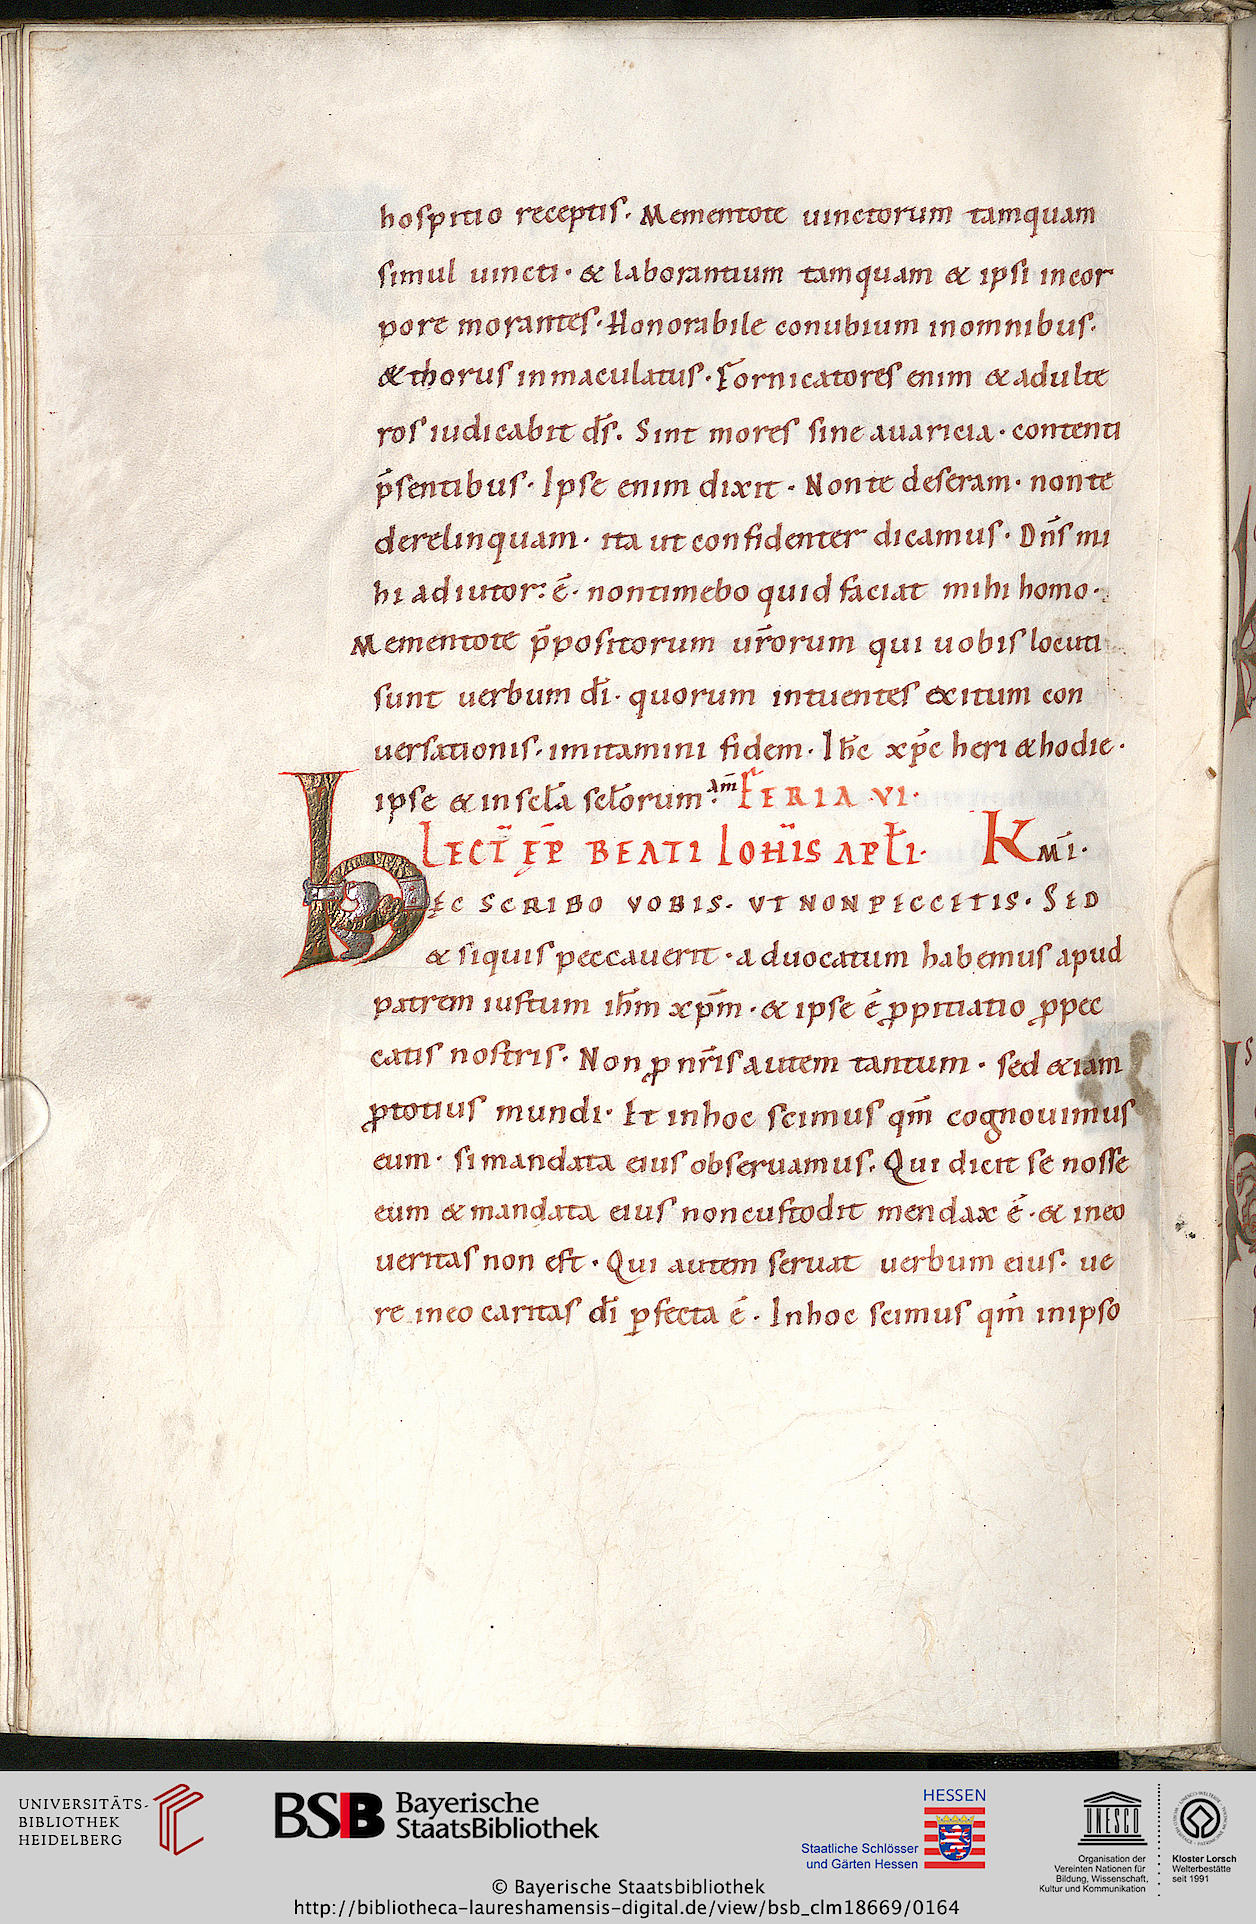 hospitio receptis. Mementote uinctorum tamquam
simul uincti. & laborantium tamquam & ipsi incor
pore morantes. Honorabile conubium inomnibus.
& thorus inmaculatus. Fornicatores enim & adulte
ros iudicabit ds̄. Sint mores sine auaricia. contenti
p̄sentibus. Ipse enim dixit. Non te deseram. non te
derelinquam. ita ut confidenter dicamus. Dn̄s mi
hi adiutor: ē. non timebo quid faciat mihi homo.
Mementote p̄positorum ur̄orum qui uobis locuti
sunt uerbum dī. quorum intuentes exitum con
uersationis. imitamini fidem. Ih̄c xp̄c heri & hodie.
ipse & in scl̄a scl̄orum. am̄ FERIA VI.
LECT̄ EP̄ BEATI IOH̄IS APL̄I. Kmī.
HEC SCRIBO VOBIS. VT NON PECCETIS. SED
& siquis peccauerit. aduocatum habemus apud
patrem iustum ih̄m xp̄m. & ipse ē ꝓpitiatio ꝓ pec
catis nostris. Non ꝓ nr̄is autem tantum. sed &iam
ꝓ totius mundi. Et in hoc scimus qm̄ cognouimus
eum. si mandata eius obseruamus. Qui dicit se nosse
eum & mandata eius non custodit mendax ē. & in eo
ueritas non est. Qui autem seruat uerbum eius. ue
re in eo caritas dī ꝑfecta ē. In hoc scimus qm̄ in ipso
UNIVERSITÄTS-
BIBLIOTHEK
HEIDELBERG
BSB Bayerische
StaatsBibliothek
HESSEN
Staatliche Schlösser
und Gärten Hessen
UNESCO
Organisation der
Vereinten Nationen für
Bildung, Wissenschaft,
Kultur und Kommunikation
Kloster Lorsch
Welterbestätte
seit 1991
© Bayerische Staatsbibliothek
http://bibliotheca-laureshamensis-digital.de/view/bsb_clm18669/0164